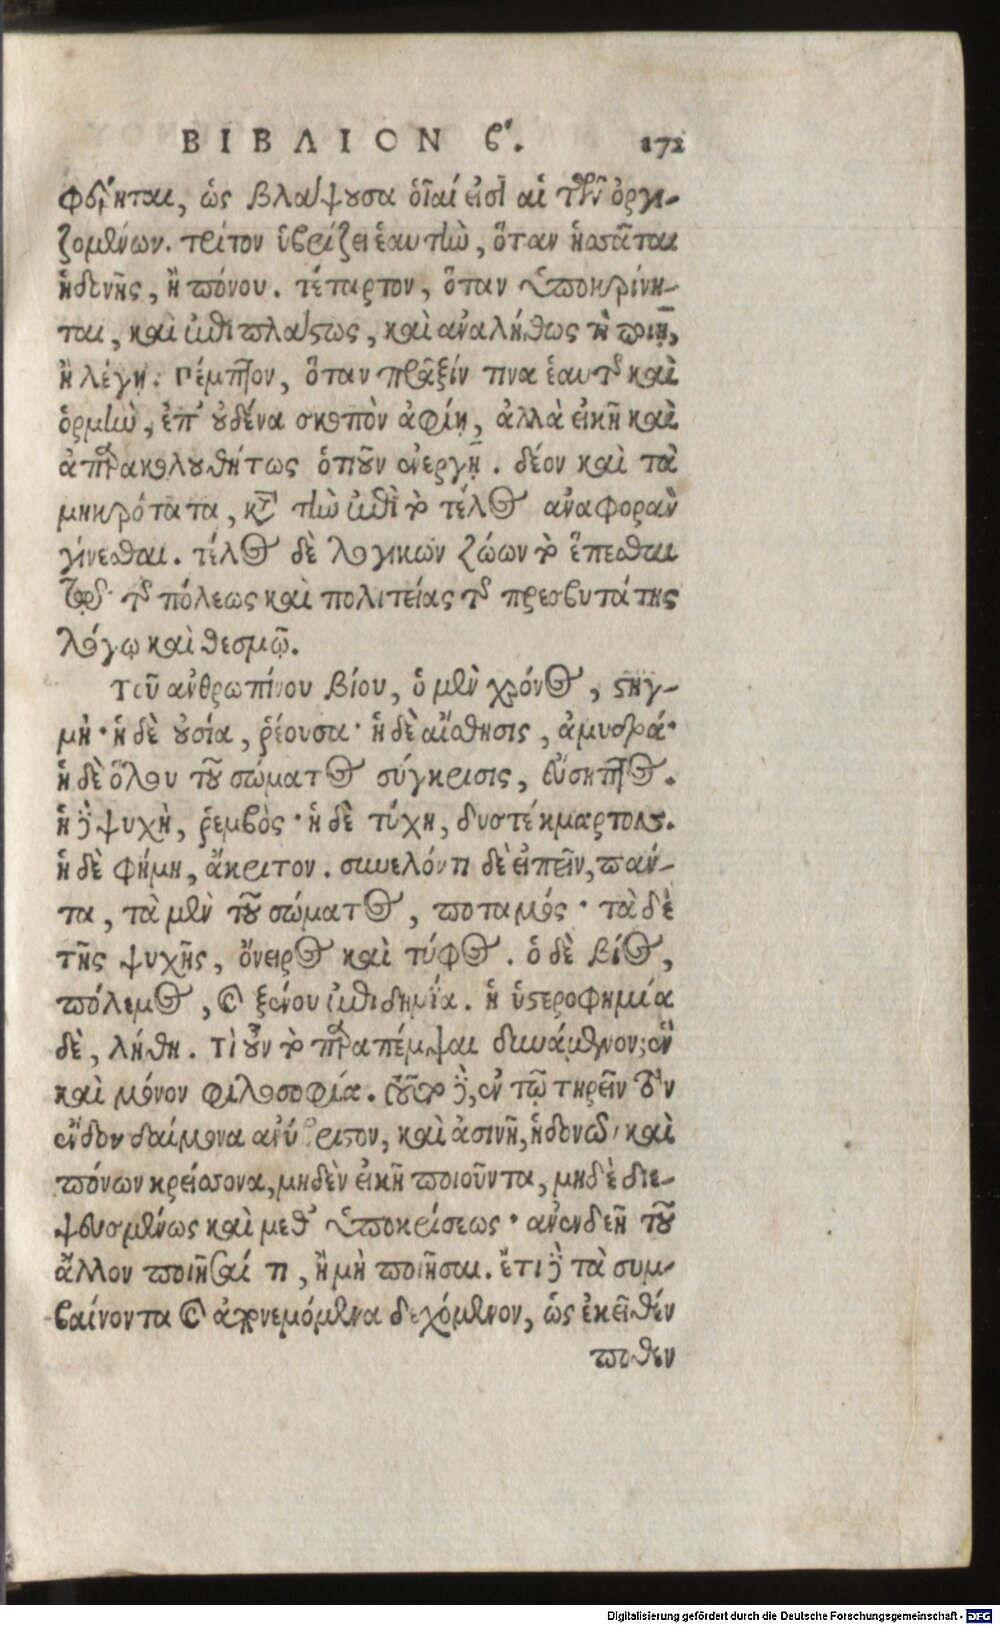 ΒΙΒΛΙΟΝ β'. 172
φέρηται, ὡς βλάψουσα οἷαί εἰσι αἱ τῶν ὀργι-
ζομένων. τρίτον ὑβρίζει ἑαυτὴν, ὅταν ἡσσᾶται
ἡδονῆς, ἢ πόνου. τέταρτον, ὅταν ὑποκρίνη-
ται, καὶ ἐπιπλάστως, καὶ ἀναλήθως τὶ ποιῇ,
ἢ λέγῃ. Πέμπτον, ὅταν πρᾶξίν τινα ἑαυτῆς καὶ
ὁρμὴν, ἐπ' οὐδένα σκοπὸν ἀφίῃ, ἀλλὰ εἰκῆ καὶ
ἀπαρακολουθήτως ὁτιοῦν ἐνεργῇ. δέον καὶ τὰ
μικρότατα, κατὰ τὴν ἐπὶ τὸ τέλος ἀναφορὰν
γίνεσθαι. τέλος δὲ λογικῶν ζώων τὸ ἕπεσθαι
τῷ τῆς πόλεως καὶ πολιτείας τῆς πρεσβυτάτης
λόγῳ καὶ θεσμῷ.
Τοῦ ἀνθρωπίνου βίου, ὁ μὲν χρόνος, στιγ-
μή· ἡ δὲ οὐσία, ῥέουσα· ἡ δὲ αἴσθησις, ἀμυδρά·
ἡ δὲ ὅλου τοῦ σώματος σύγκρισις, εὔσηπτος.
ἡ δὲ ψυχὴ, ῥεμβὸς· ἡ δὲ τύχη, δυστέκμαρτον.
ἡ δὲ φήμη, ἄκριτον. συνελόντι δὲ εἰπεῖν, πάν-
τα, τὰ μὲν τοῦ σώματος, ποταμός· τὰ δὲ
τῆς ψυχῆς, ὄνειρος καὶ τύφος. ὁ δὲ βίος,
πόλεμος, καὶ ξένου ἐπιδημία. ἡ ὑστεροφημία
δὲ, λήθη. τί οὖν τὸ παραπέμψαι δυνάμενον; ἓν
καὶ μόνον φιλοσοφία. τοῦτο δὲ, ἐν τῷ τηρεῖν τὸν
ἔνδον δαίμονα ἀνύβριστον, καὶ ἀσινῆ, ἡδονῶν καὶ
πόνων κρείσσονα, μηδὲν εἰκῆ ποιοῦντα, μηδὲ διε-
ψευσμένως καὶ μεθ' ὑποκρίσεως· ἀνενδεῆ τοῦ
ἄλλον ποιῆσαί τι, ἢ μὴ ποιῆσαι. ἔτι δὲ τὰ συμ-
βαίνοντα καὶ ἀπονεμόμενα δεχόμενον, ὡς ἐκεῖθέν
ποθεν
Digitalisierung gefördert durch die Deutsche Forschungsgemeinschaft - DFG